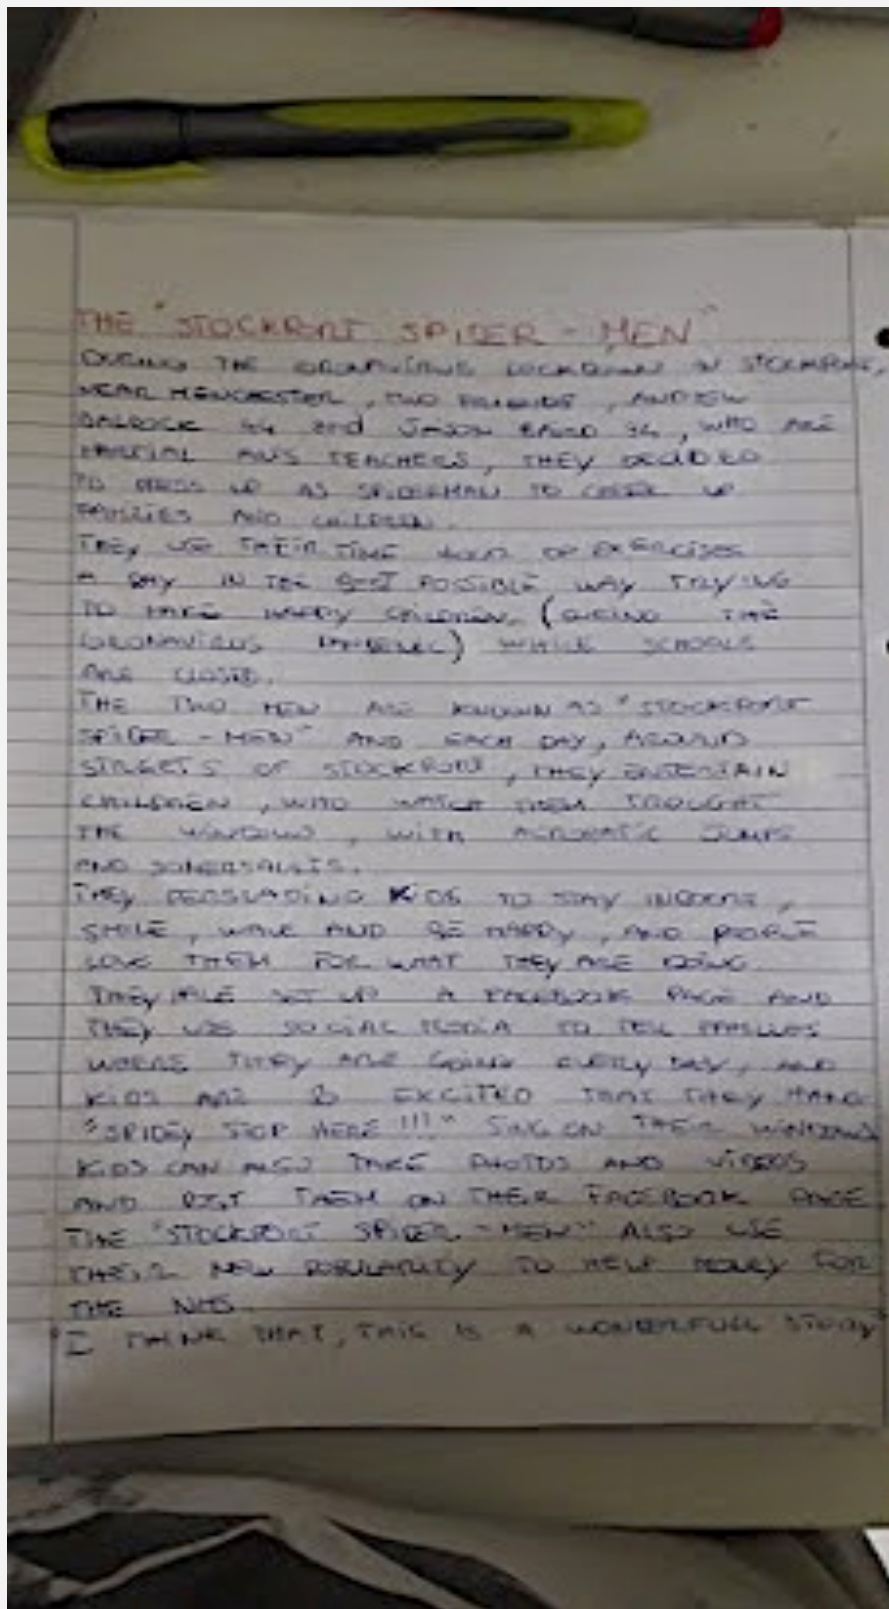 THE "STOCKPORT SPIDER - MEN"
DURING THE CORONAVIRUS LOCKDOWN IN STOCKPORT,
NEAR MENCHESTER, TWO FRIENDS, ANDREW
BALDOCK 44 and JASON BAIRD 34, WHO ARE
MARTIAL ARTS TEACHERS, THEY DECIDED
TO DRESS UP AS SPIDERMAN TO CHEER UP
FAMILIES AND CHILDREN.
THEY USE THEIR TIME HOUR OF EXERCISES
A DAY IN THE BEST POSSIBLE WAY TRYING
TO MAKE HAPPY CHILDREN, (DURING THE
CORONAVIRUS PANDEMIC) WHILE SCHOOLS
ARE CLOSED.
THE TWO MEN ARE KNOWN AS "STOCKPORT
SPIDER - MEN" AND EACH DAY, AROUND
STREETS OF STOCKPORT, THEY ENTERTAIN
CHILDREN, WHO WATCH THEM TROUGHT
THE WINDOWS, WITH ACROBATIC JUMPS
AND SOMERSAULTS.
THEY PERSUADING KIDS TO STAY INDOORS,
SMILE, WAVE AND BE HAPPY, AND PEOPLE
LOVE THEM FOR WHAT THEY ARE DOING.
THEY HAVE SET UP A FACEBOOK PAGE AND
THEY USE SOCIAL MEDIA TO TELL FAMILIES
WHERE THEY ARE GOING EVERY DAY, AND
KIDS ARE SO EXCITED THAT THEY HANG
"SPIDEY STOP HERE !!!" SING ON THEIR WINDOWS
KIDS CAN ALSO TAKE PHOTOS AND VIDEOS
AND POST THEM ON THEIR FACEBOOK PAGE
THE "STOCKPORT SPIDER - MEN" ALSO USE
THEIR NEW POPULARITY TO HELP MONEY FOR
THE NHS.
I THINK THAT, THIS IS A WONDERFULL STORY